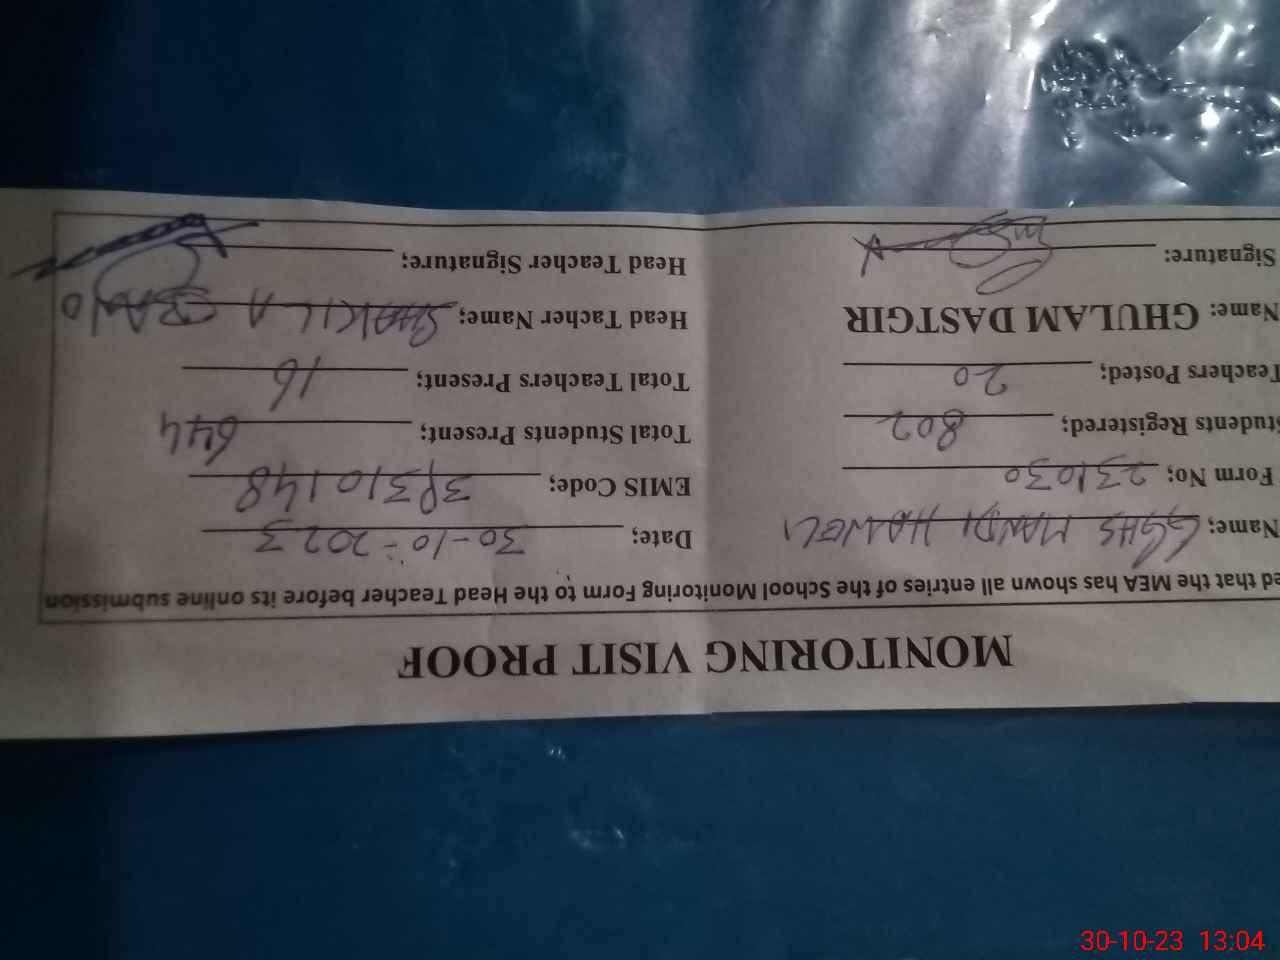 MONITORING VISIT PROOF
ed that the MEA has shown all entries of the School Monitoring Form to the Head Teacher before its online submission
Name; GGHS MANDI Date; 30-10-2023
Form No; 231030 EMIS Code; 38310148
Students Registered; 802 Total Students Present; 644
Teachers Posted; 20 Total Teachers Present; 16
Name: GHULAM DASTGIR Head Tacher Name; SHAKILA
Signature: Head Teacher Signature;
30-10-23 13:04